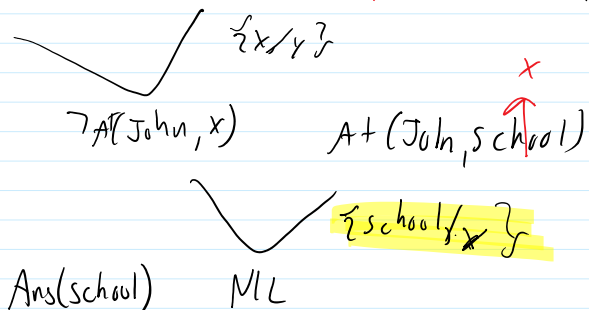 {x/y}
x
¬At(John, x) At(John, school)
{school/x}
Ans(school) NIL